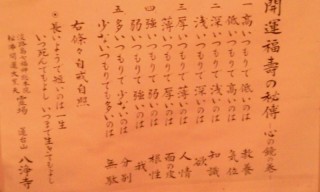 開運福壽の秘傳 心の鏡の巻
一 高いつもりで低いのは 教養
一 低いつもりで高いのは 気位
二 深いつもりで浅いのは 知識
二 浅いつもりで深いのは 欲
三 厚いつもりで薄いのは 人情
三 薄いつもりで厚いのは 面の皮
四 強いつもりで弱いのは 根性
四 弱いつもりで強いのは 我
五 多いつもりで少ないのは 分別
五 少ないつもりで多いのは 無駄
右條々自戒自照
長いようで短いのは一生
いつ死んでもよし いつまで生きてもよし
淡路島七福神
霊場
蓮台山 八浄寺